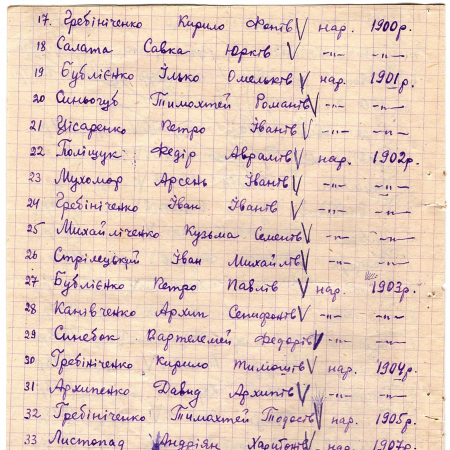 17. Гребініченко Кирило Фотів V нар. 1900р.
18 Салата Савка Юрків V -"- -"-
19 Бублієнко Їлько Омельків V нар. 1901р.
20 Синьогуб Тимохтей Романів V -"- -"-
21 Цісаренко Петро Їванів V -"- -"-
22 Поліщук Федір Аврамів V нар. 1902р.
23 Мухомор Арсень Їванів V -"- -"-
24 Гребініченко Їван Їванів V -"- -"-
25 Михайліченко Кузьма Сементв V -"- -"-
26 Стрілецький Їван Михайлів V -"- -"-
27 Бублієнко Петро Павлів V нар. 1903р.
28 Канівченко Архип V -"- -"-
29 Синебок Вартелемей Федорів V -"- -"-
30 Гребініченко Кирило Тимошів V нар. 1904р.
31 Архипенко Давид Архипів V -"- -"-
32 Гребініченко Тимохтей Тодосів V нар. 1905р.
33 Листопад Андріян Харитонів V нар. 1907р.